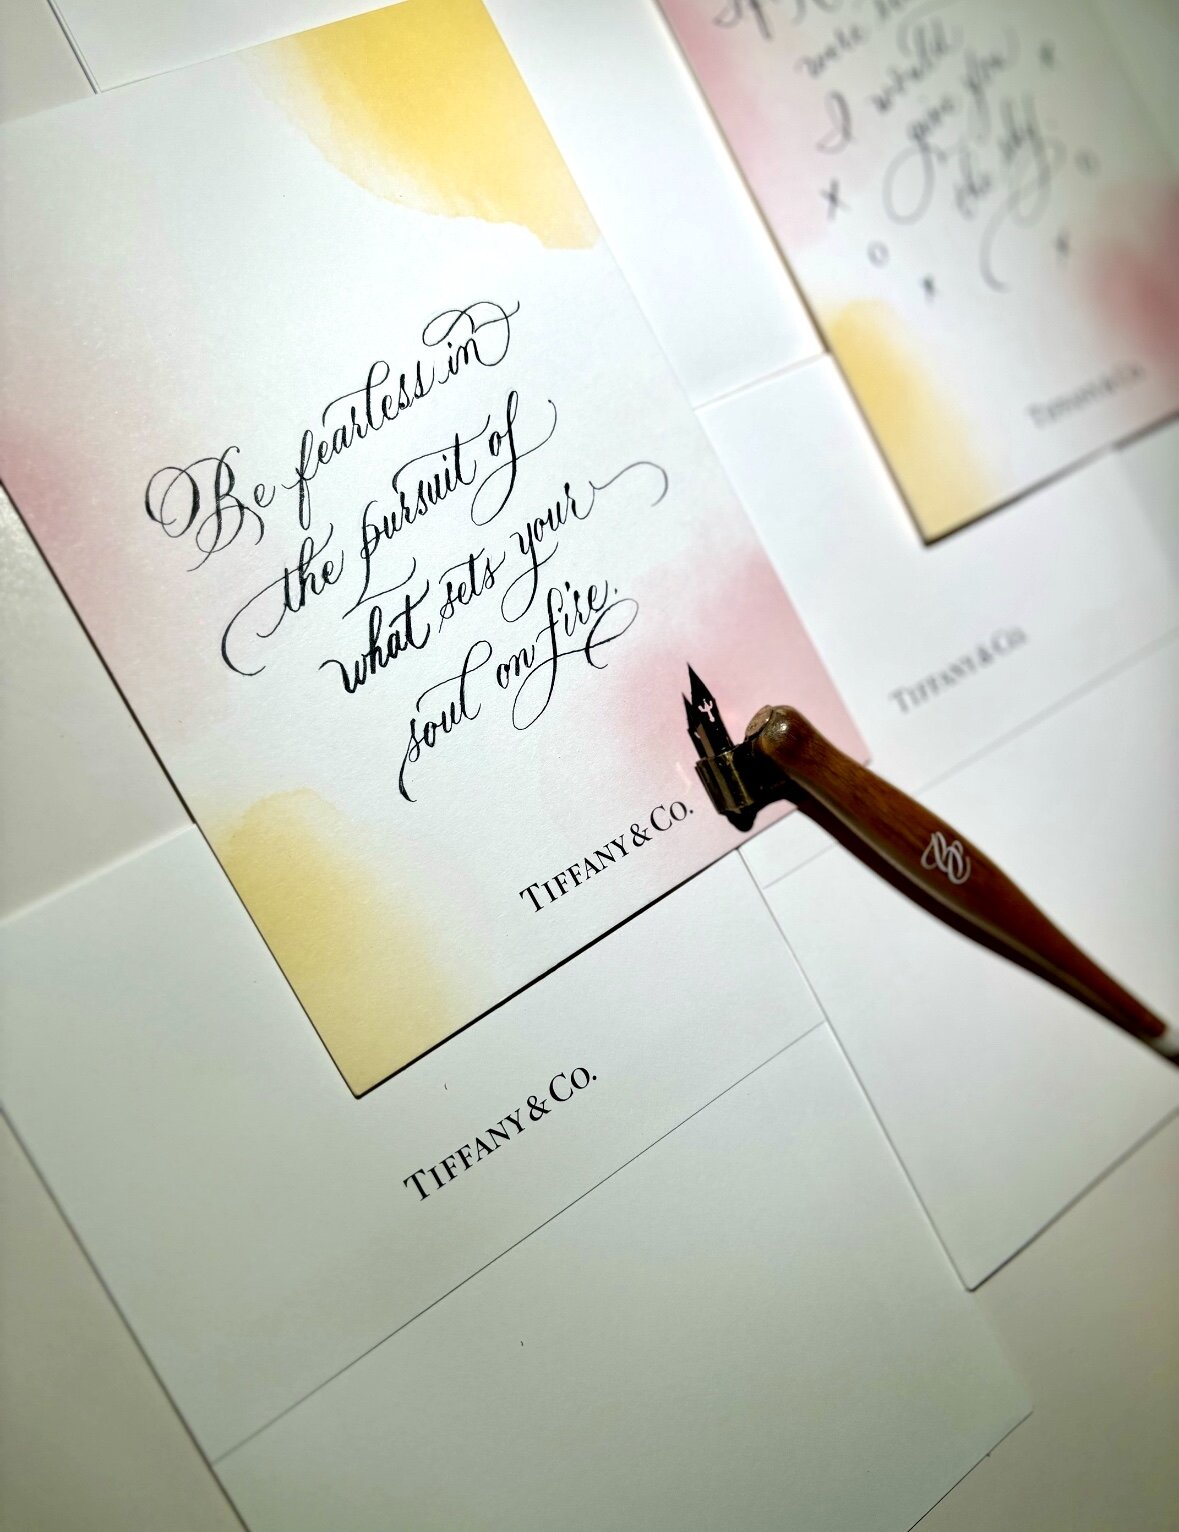 Be fearless in
the pursuit of
what sets your
soul on fire.
TIFFANY & CO.
TIFFANY & CO.
I would
give you
the sky
x
o
x
x
o
x
TIFFANY & CO.
TIFFANY & CO.